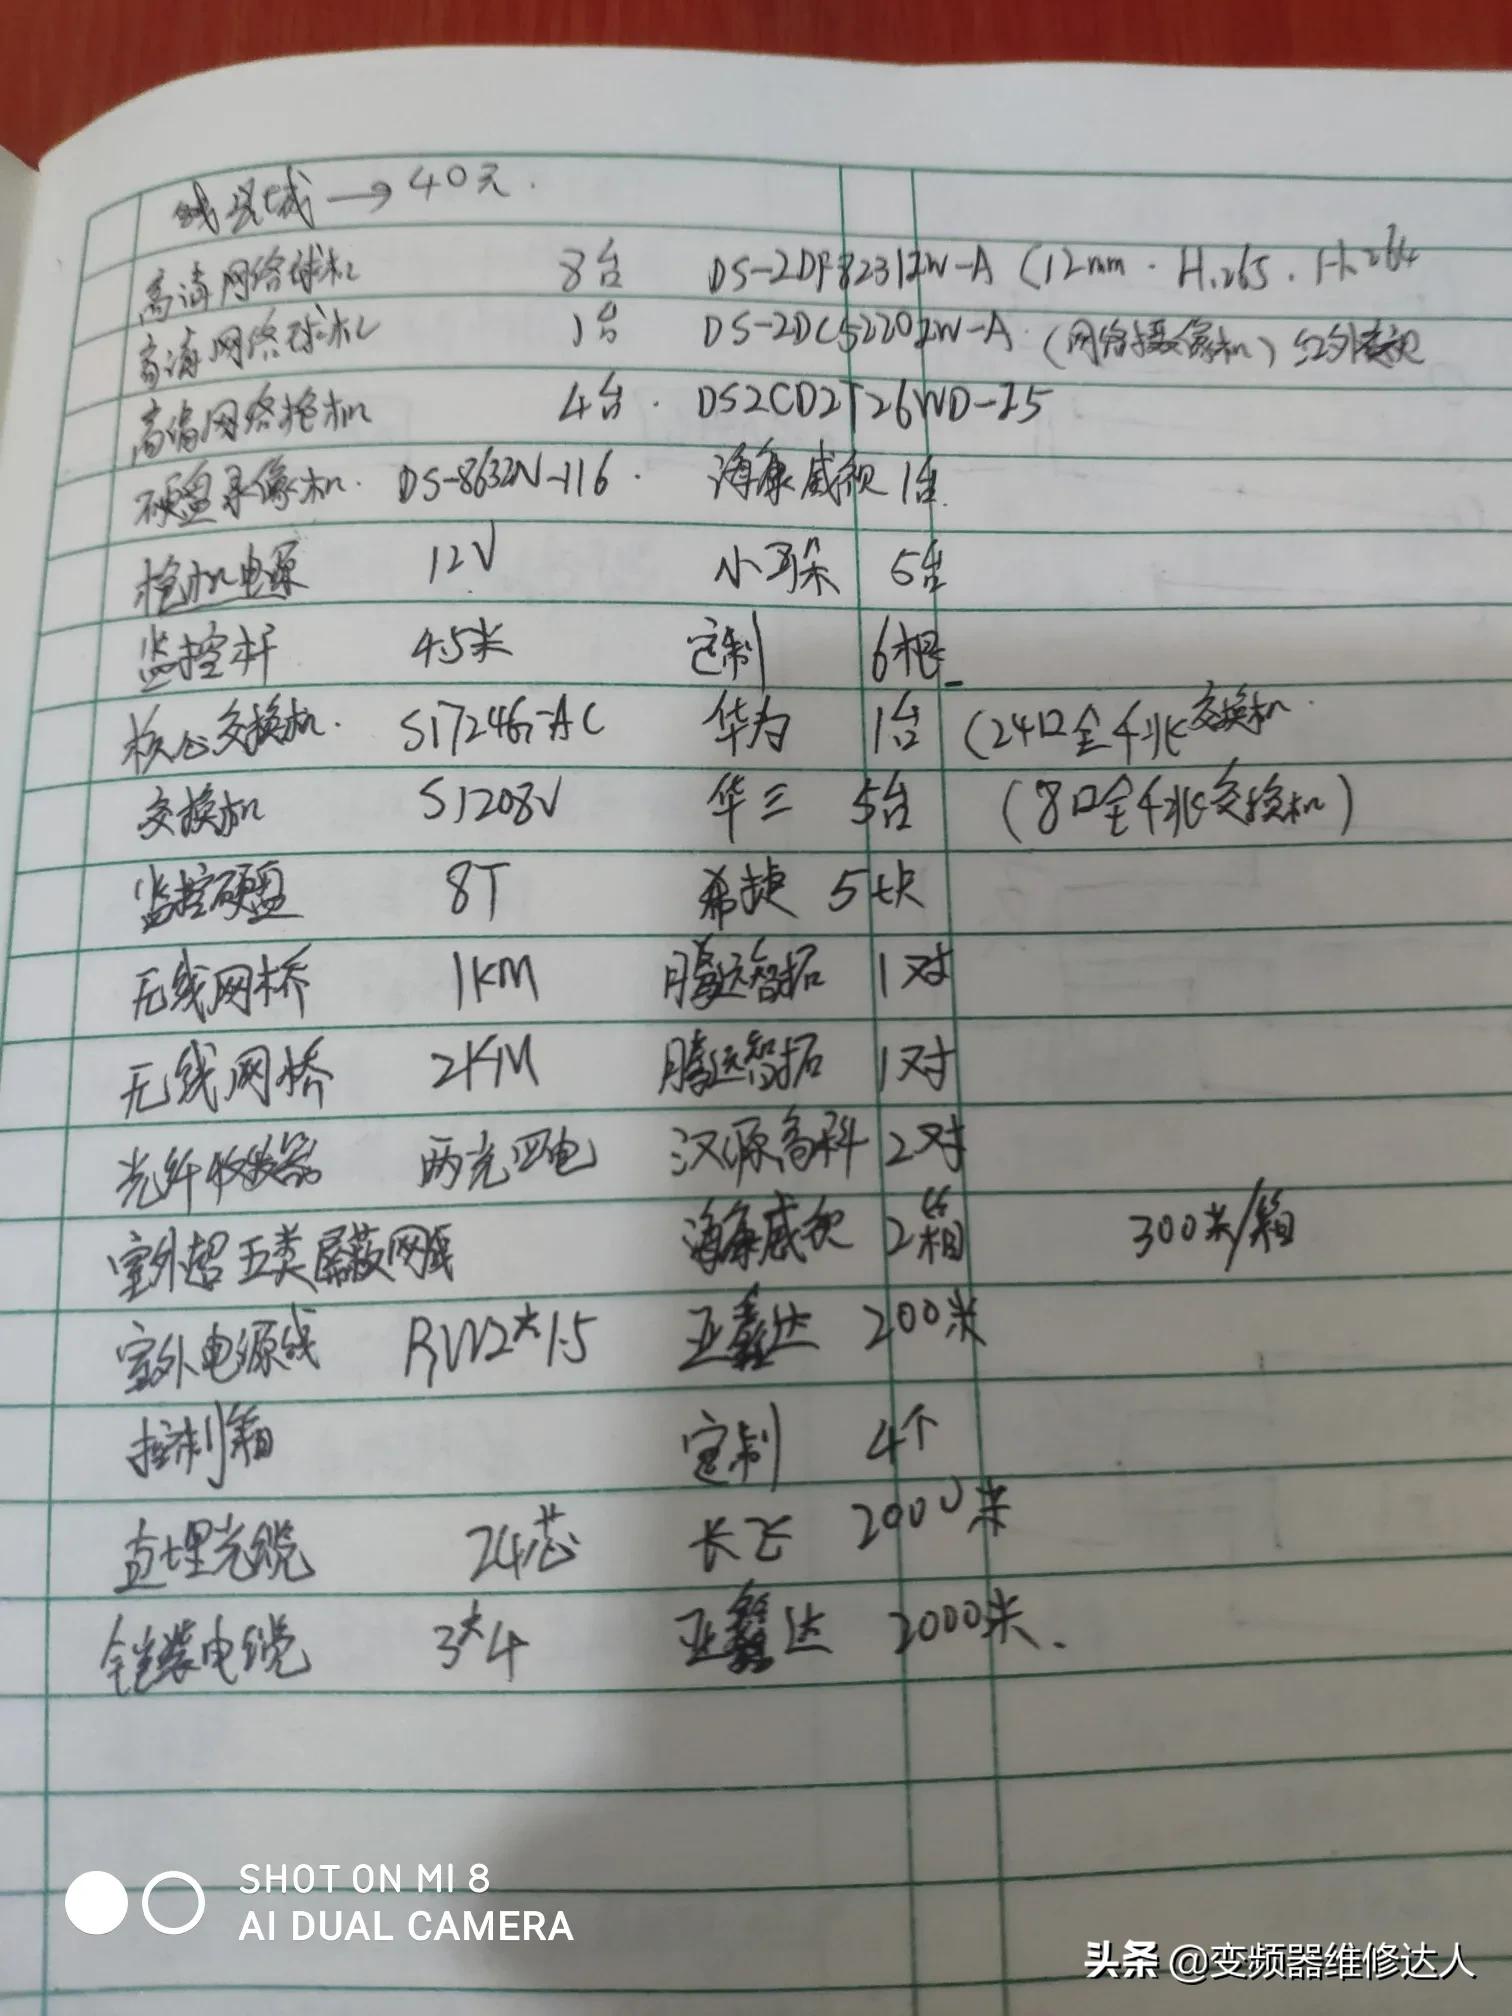 线区域→40元.
高清网络球机 8台 DS-2DF8231IW-A (12mm. H.265. H.264
高清网络球机 1台 DS-2DC5220IW-A.(网络摄像机)红外
高清网络枪机 4台. DS2CD2T26WD-I5
硬盘录像机. DS-8632N-I16. 海康威视 1台.
枪机电源 12V 小耳朵 5台
监控杆 4.5米 定制 6根
核心交换机. S1724G-AC 华为 1台 (24口全千兆交换机.
交换机 S1208V 华三 5台 (8口全千兆交换机)
监控硬盘 8T 希捷 5块
无线网桥 1KM 腾远智拓 1对
无线网桥 2KM 腾远智拓 1对
光纤收发器 两光四电 汉源高科 2对
室外超五类屏蔽网线 海康威视 2箱 300米/箱
室外电源线 RVV2*1.5 亚鑫达 200米
控制箱 定制 4个
直埋光缆 24芯 长飞 2000米
铠装电缆 3*4 亚鑫达 2000米.
SHOT ON MI 8
AI DUAL CAMERA
头条 @变频器维修达人